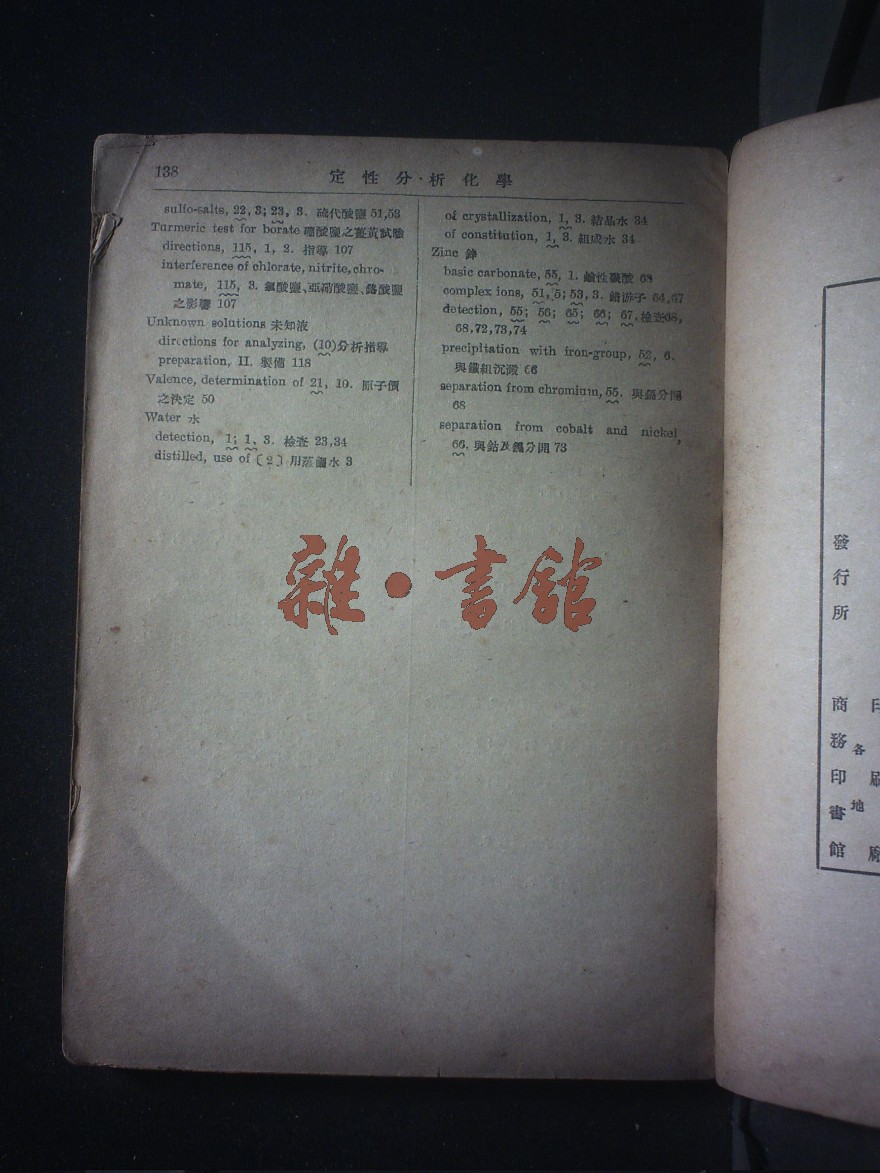 138
定性分析化學
sulfo-salts, 22, 3; 23, 3. 硫代酸鹽 51,53
Turmeric test for borate 硼酸鹽之薑黃試驗
directions, 115, 1, 2. 指導 107
interference of chlorate, nitrite, chro-
mate, 115, 3. 氯酸鹽、亞硝酸鹽、鉻酸鹽
之影響 107
Unknown solutions 未知液
directions for analyzing, (10)分析指導
preparation, II. 製備 118
Valence, determination of 21, 10. 原子價
之決定 50
Water 水
detection, 1; 1, 3. 檢查 23,34
distilled, use of (2) 用蒸餾水 3
of crystallization, 1, 3. 結晶水 34
of constitution, 1, 3. 組成水 34
Zinc 鋅
basic carbonate, 55, 1. 鹼性碳酸 68
complex ions, 51, 5; 53, 3. 錯游子 64,67
detection, 55; 56; 65; 66; 67. 檢查68,
68,72,73,74
precipitation with iron-group, 52, 6.
與鐵組沉澱 66
separation from chromium, 55. 與鉻分開
68
separation from cobalt and nickel,
66. 與鈷及鎳分開 73
雜·書館
發行所
商務印書館
各地
印刷廠